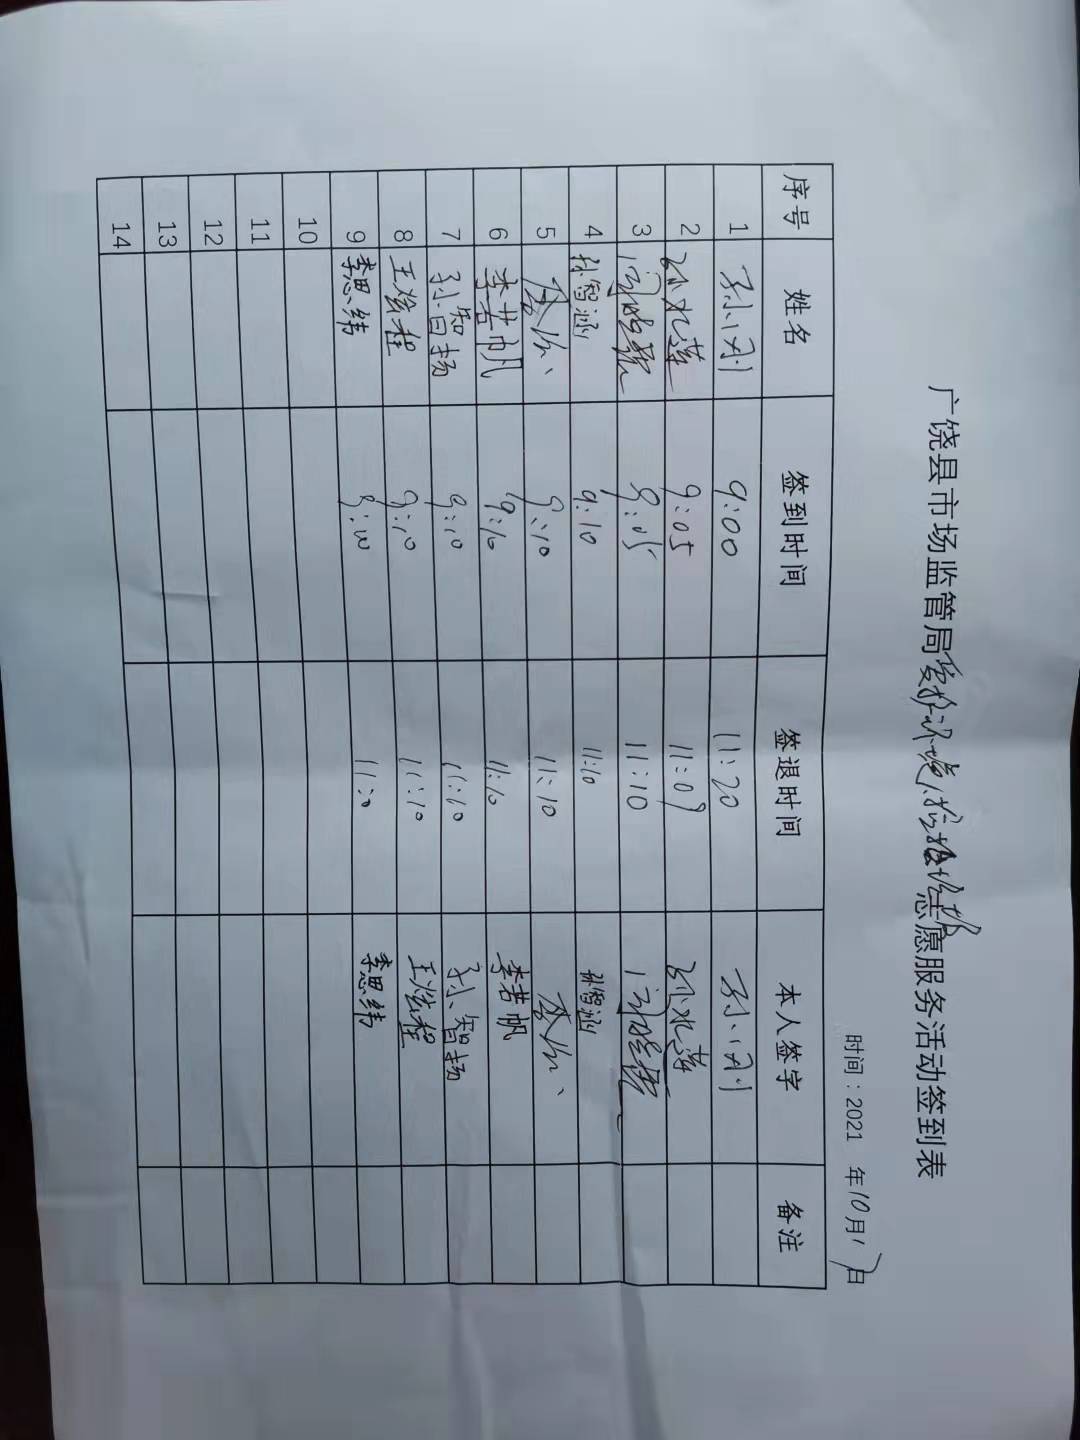 广饶县市场监管局爱护环境,捡拾垃圾志愿服务活动签到表
时间：2021 年10月17日
序号 姓名 签到时间 签退时间 本人签字 备注
1 孙刚 9:00 11:20 孙刚
2 9:05 11:09
3 9:05 11:10
4 孙智涵 9:10 11:10 孙智涵
5 9:10 11:10
6 李若帆 9:10 11:10 李若帆
7 孙智扬 9:10 11:10 孙智扬
8 王炫程 9:10 11:10 王炫程
9 李思纬 9:10 11:10 李思纬
10
11
12
13
14